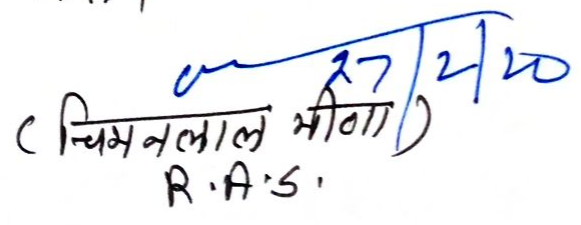 27/2/20
(चिमनलाल मीणा)
R.A.S.